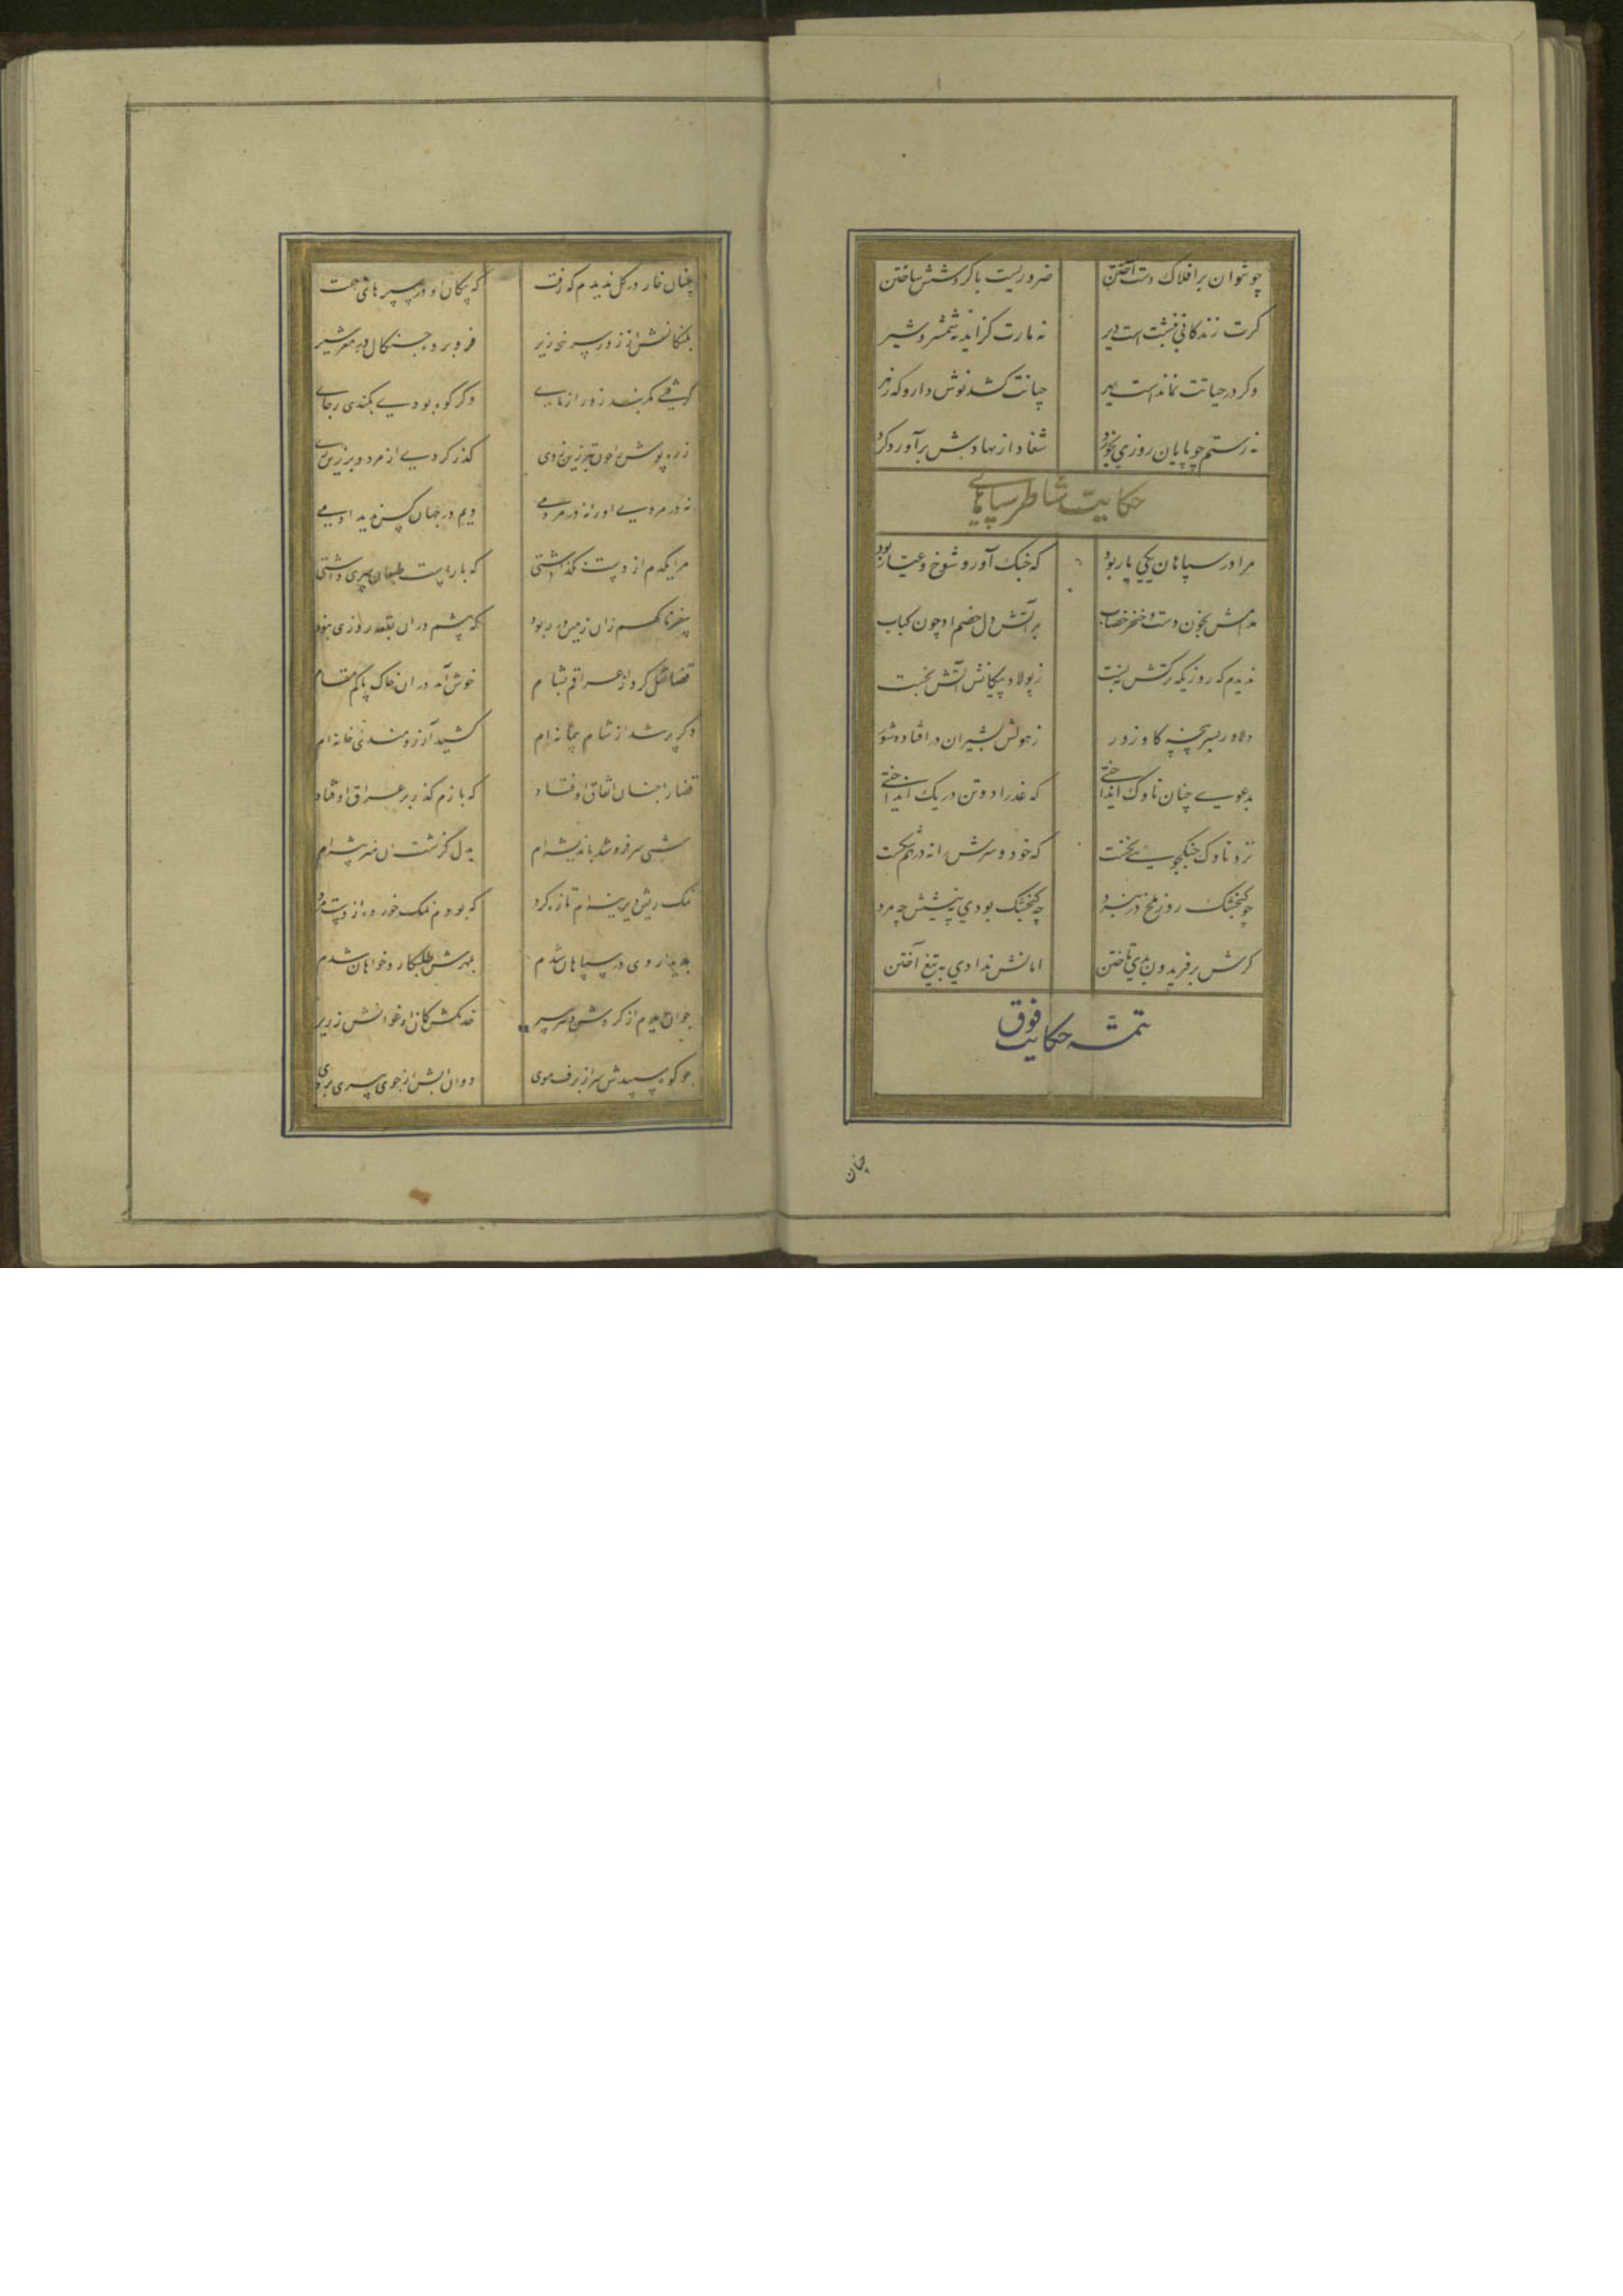 چو نتوان بر افلاک دست آختن ضروریست با گردشش ساختن
کرت زندگانی نبشت است دیر نه مارت گزاید نه شمشیر و شیر
وگر در حیاتت نماند است بهر چنانت کشد نوش دارو که زهر
نه رستم چو پایان روزی بخورد شغاد از نهادش برآورد گرد
حکایت شاطر سپاهانی
مرا در سپاهان یکی یار بود که جنگ آور و شوخ و عیار بود
مدامش بخون دست و خنجر خضاب بر آتش دل خصم او چون کباب
ندیدم که روزیکه ترکش نبست ز پولاد پیکانش آتش نجست
دلاور بسرپنجه کاو زور ز هولش بشیران در افتاده شور
بدعوی چنان ناوک انداختی که عذرا دو تن در یک انداختی
نزد ناوک جنگجویی بخست که خود و سرش را نه در هم شکست
چو کنجشک روز ملخ در نبرد چه کنجشک بودی به پیشش چه مرد
کرش بر فریدون بدی تاختن امانش ندادی به تیغ آختن
تتمه حکایت فوق
چنان
چنان خار در گل ندیدم که رفت که پیکان او در سپر های جفت
پلنگانش از زور سرپنجه زیر فرو برده چنگال در مغز شیر
گرفتی کمربند زور آزمای وکر کوه بودی بکندی ز جای
زره پوش را چون تبرزین زدی کذر کردی از مرد و بر زین زدی
نه در مردی او را نه در مردمی دویم در جهان کس ندید آدمی
مرا یکدم از دست نکذاشتی که با راست طبعان سری داشتی
سفر ناگهم زان زمین در ربود که پیشم در آن بقعه روزی نبود
قضا نقل کرد از عراقم بشام خوش آمد در آن خاک پاکم مقام
دکر پر شد از شام پیمانه ام کشید آرزومندی خانه ام
قضا را چنان اتفاق اوفتاد که بازم کذر بر عراق اوفتاد
شبی سر فرو شد باندیشه ام بدل گزشت آن هنر پیشه ام
نمک ریش دیرینه ام تازه کرد که بودم نمک خورده از دست مرد
بدیدار وی در سپاهان شدم بمهرش طلبکار و خواهان شدم
جوان دیدم از کردش دهر پیر خدنکش کمان ارغوانش زریر
چو کوه سپیدش سر از برف موی دوان آبش از جوی پیری بروی